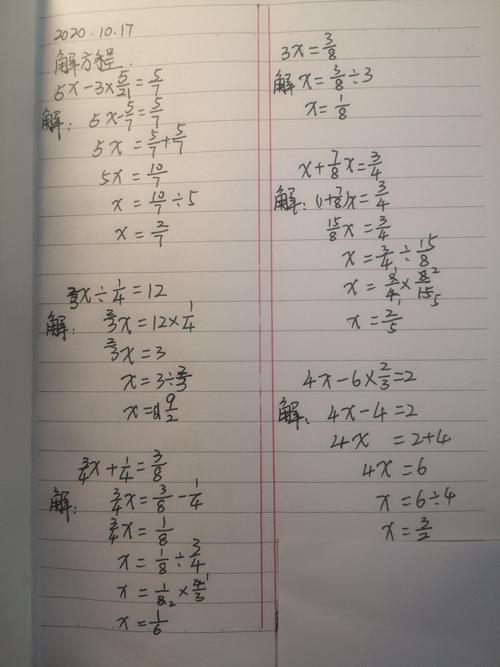 2020.10.17
解方程.
5x-3×5/21=5/7
解: 5x-5/7=5/7
5x=5/7+5/7
5x=10/7
x=10/7÷5
x=2/7
2/3x÷1/4=12
解: 2/3x=12×1/4
2/3x=3
x=3÷2/3
x=9/2
3/4x+1/4=3/8
解: 3/4x=3/8-1/4
3/4x=1/8
x=1/8÷3/4
x=1/8 2×4 1/3
x=1/6
3x=3/8
解 x=3/8÷3
x=1/8
x+7/8x=3/4
解: (1+7/8)x=3/4
15/8x=3/4
x=3/4÷15/8
x=3 1/4 1×8 2/15 5
x=2/5
4x-6×2/3=2
解: 4x-4=2
4x=2+4
4x=6
x=6÷4
x=3/2